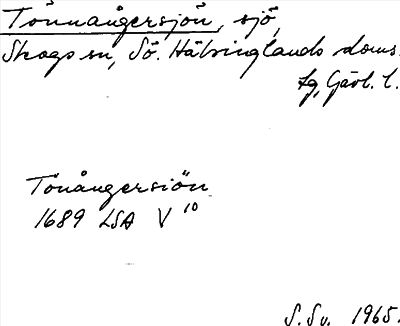 Tönnångersjön, sjö,
Skogs sn, Sö. Hälsinglands doms.
fg, Gävl. l.
Tönångersiön
1689 LSA V 10
S. Sv. 1965.